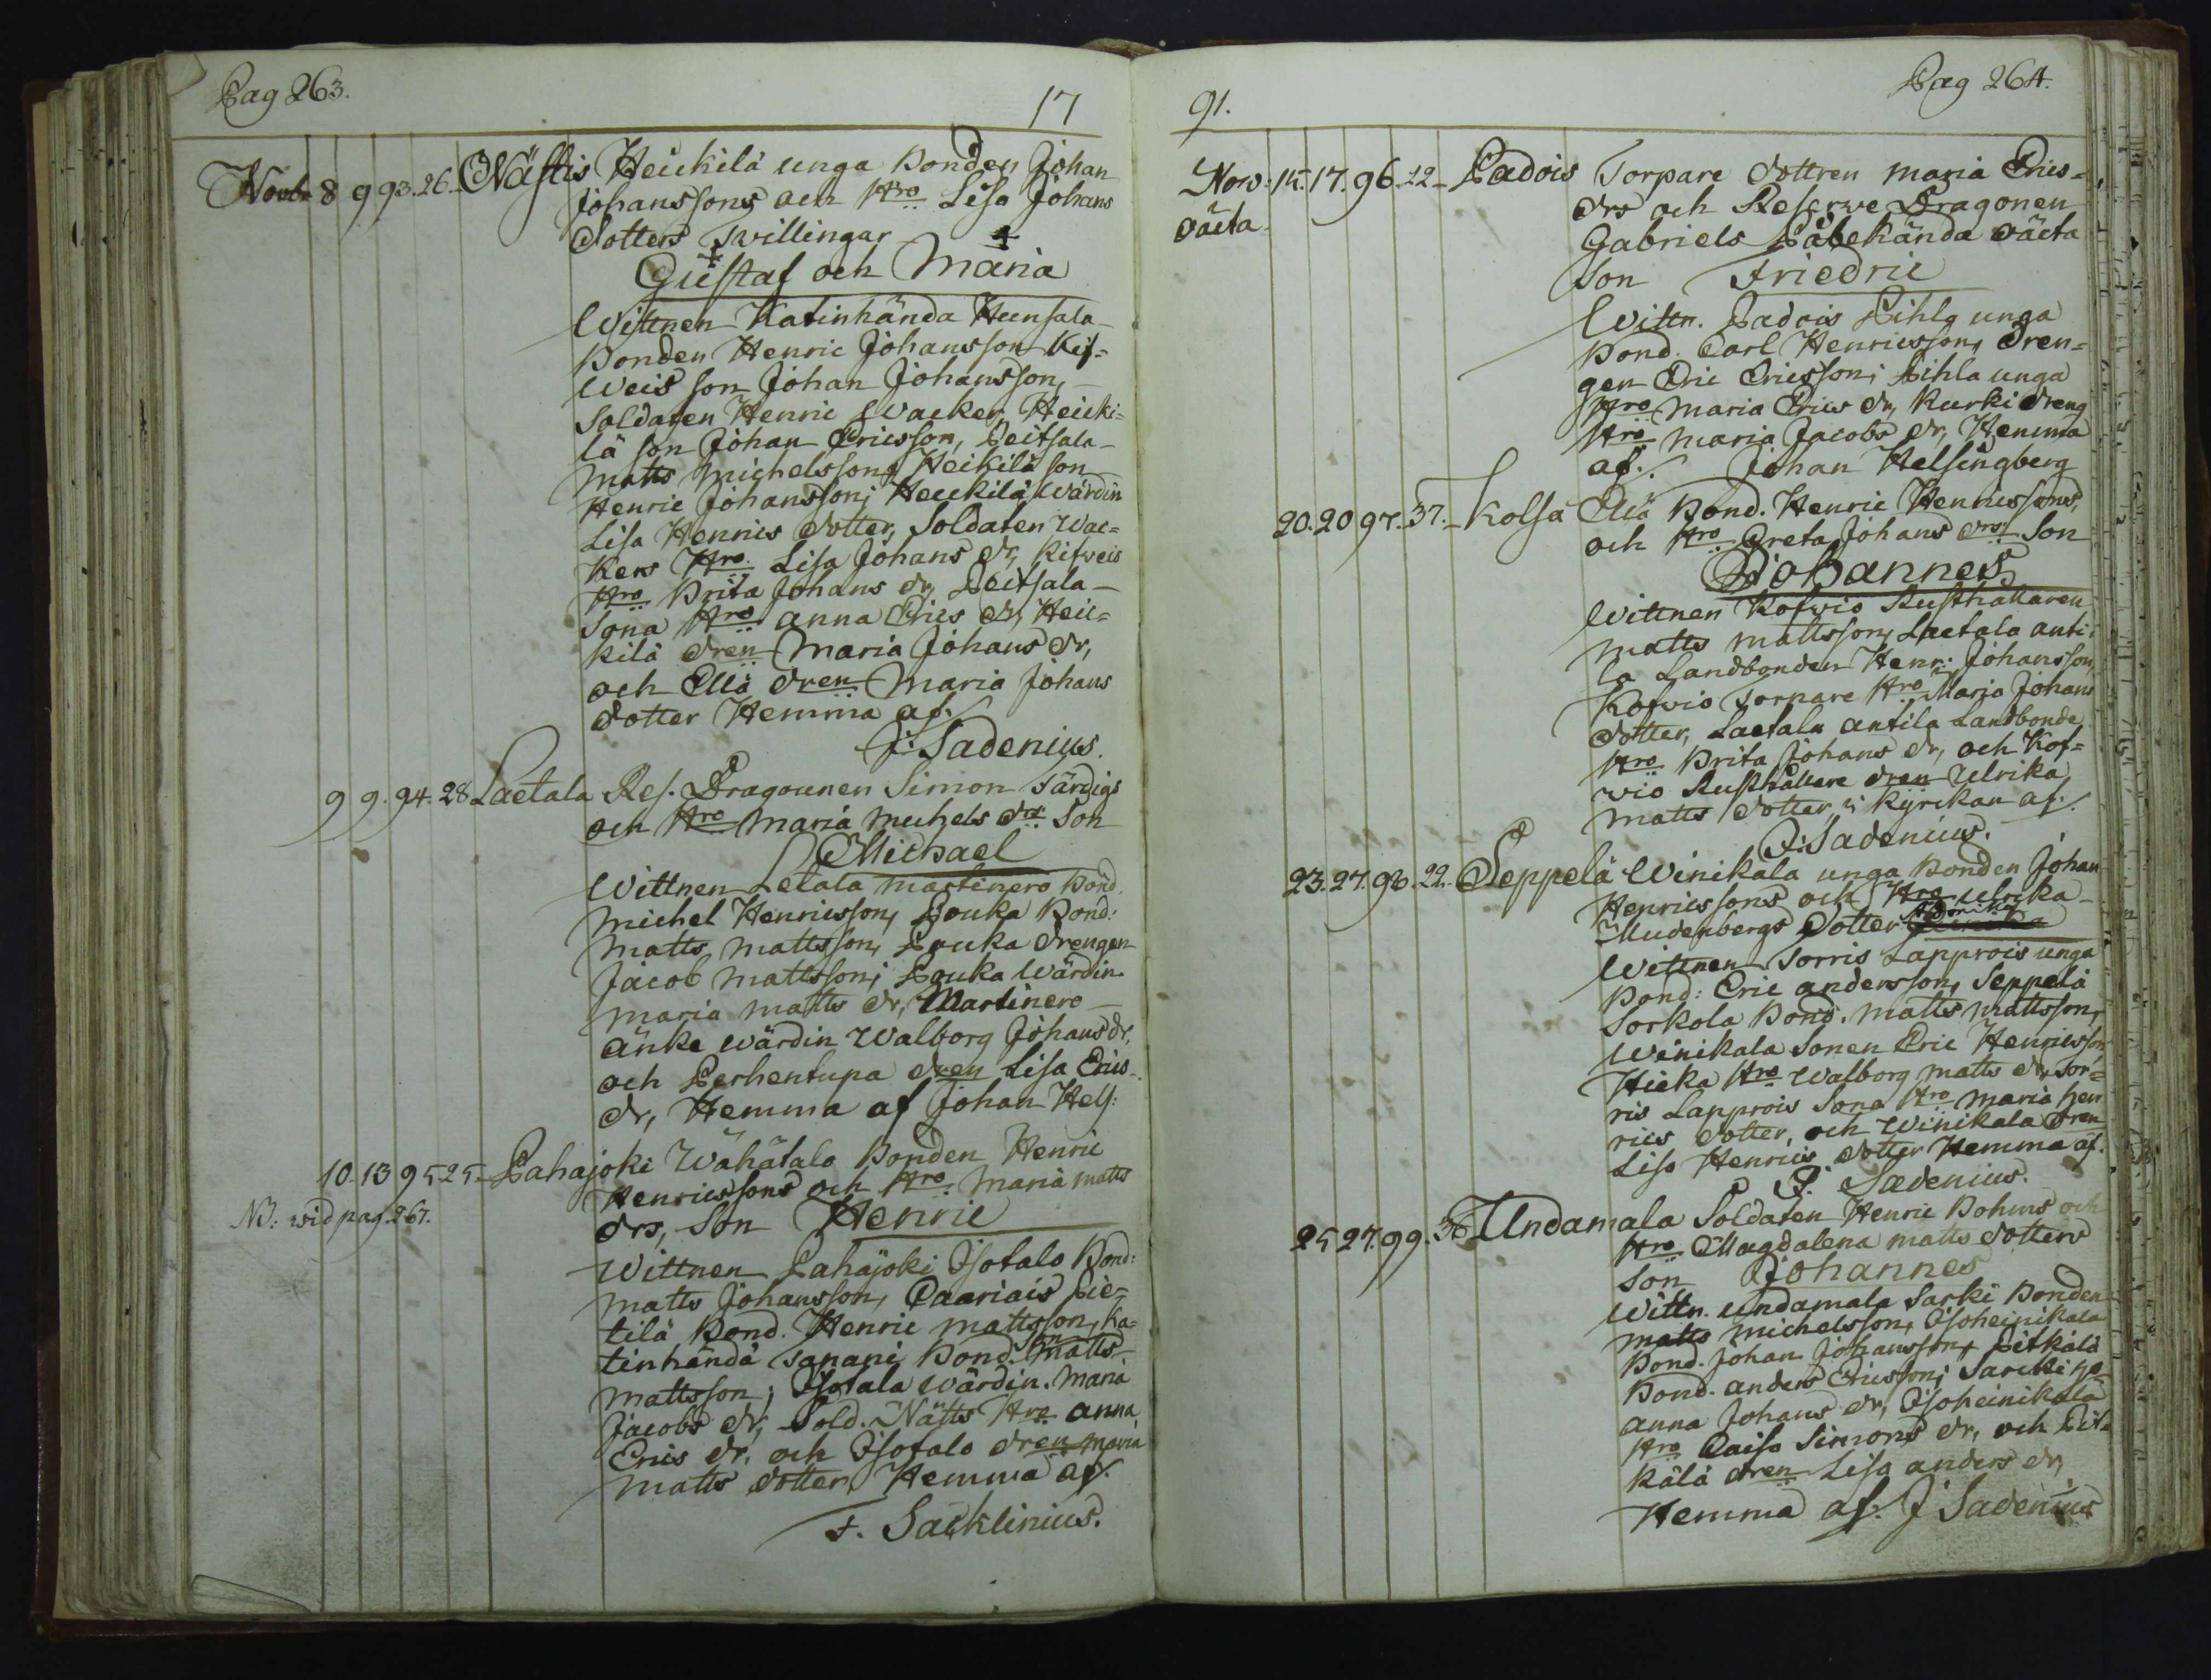 Pag 263.
17
Novbr 8 9 93. 26. Nästis Heickilä unga Bonden Johan
Johanssons och Hro Lisa Johans
dotters Twillingar
Gustaf och Maria
Wittnen Katinhända Hunsala
Bonden Henric Johansson Kif=
weis son Johan Johansson,
Soldaten Henric Wacker, Heicki=
lä son Johan Ericsson, Peitsala
Matts Michelsson, Heikilä son
Henric Johansson; Heickilä Wärdin
Lisa Henrics dotter, Soldaten Wac=
kers Hro Lisa Johans dr, Kifweis
Hro Brita Johans dr, Peitsala
Sona Hro Anna Erics dr, Heic=
kilä dren Maria Johans dr,
och Ellä dren Maria Johans
dotter Hemma af.
J: Sadenius.
9 9. 94. 28 Laetala Res. Dragounen Simon Färdigs
och Hro Maria Michels drs Son
Michael
Wittnen Letala Martinero Bond.
Michel Henricsson, Pouka Bond:
Matts Mattsson, Pouka drengen
Jacob Mattsson; Pouka Wärdin
Maria Matts dr, Martinero
änke wärdin Walborg Johans dr,
och Perhentupa dren Lisa Erics
dr, Hemma af Johan Hels:
10. 13 95 25 Lahajoki Wähätalo Bonden Henric
Henricssons och Hro Maria Matts
NB: wid pag. 267.
drs, Son Henric
Wittnen Lahajoki Isotalo Bond:
Matts Johansson, Caariais Pie=
tilä Bond. Henric Mattsson, Ka=
tinhändä Tapani Bond. Son Matts
Mattsson; Isotala wärdin Maria
Jacobs dr, Sold. Nätts Hro Anna
Erics dr. och Isotalo dren Maria
Matts dotter, Hemma af.
F. Sacklinius.
91.
Pag 264.
Nov: 15. 17. 96. 22 Padois Torpare dottren Maria Erics=
oäcta
drs och Reserwe Dragonen
Gabriels Påbekända oäcta
son Friedric
Wittn. Padois Pihla unga
Bond. Carl Henricsson, dren=
gen Eric Ericsson; Pihla unga
Hro Maria Erics dr, Kurki dreng
Hro Maria Jacobs dr, Hemma
af. Johan Helsingberg
20. 20 97. 37. Kolsa Ellä Bond. Henric Henricssons,
och Hro Greta Johans drs Son
Johannes
Wittnen Kofwio Rusthållaren
Matts Mattsson, Laetala anti=
la Landbonden Henr: Johansson,
Kofwio Torpare Hro Maria Johans
dotter, Laetala antila Landbonde
Hro Brita Johans dr, och Kof=
wio Rusthållare dren Ulrika
Matts dotter, i Kyrckan af.
J: Sadenius.
23. 27. 98. 22. Seppelä Winikala unga Bonden Johan
Henricssons och Hro Ulrika
Mudenbergs Dotter
Wittnen Sorris Lapprois unga
Bond: Eric Andersson, Seppelä
Sorkola Bond. Matts Mattsson,
Winikala Sonen Eric Henricsson
Hieka Hro Walborg Matts dr, Sor=
ris Lapprois Sona Hro Maria Hen
rics dotter, och Winikala dren
Lisa Henrics dotter Hemma af.
J. Sadenius.
25 27. 99. 36 Undamala Soldaten Henric Bohms och
Hro Magdalena Matts dotters
Son Johannes
Wittn. Undamala Sarki Bonden
Matts Michelsson, Isoheinikala
Bond. Johan Johansson, Pitkälä
Bond. Anders Ericsson; Sarcki Hro
Anna Johans dr, Isoheinikala
Hro Caisa Simons dr, och Pit=
kälä dren Lisa Anders dr,
Hemma af. J Sadenius